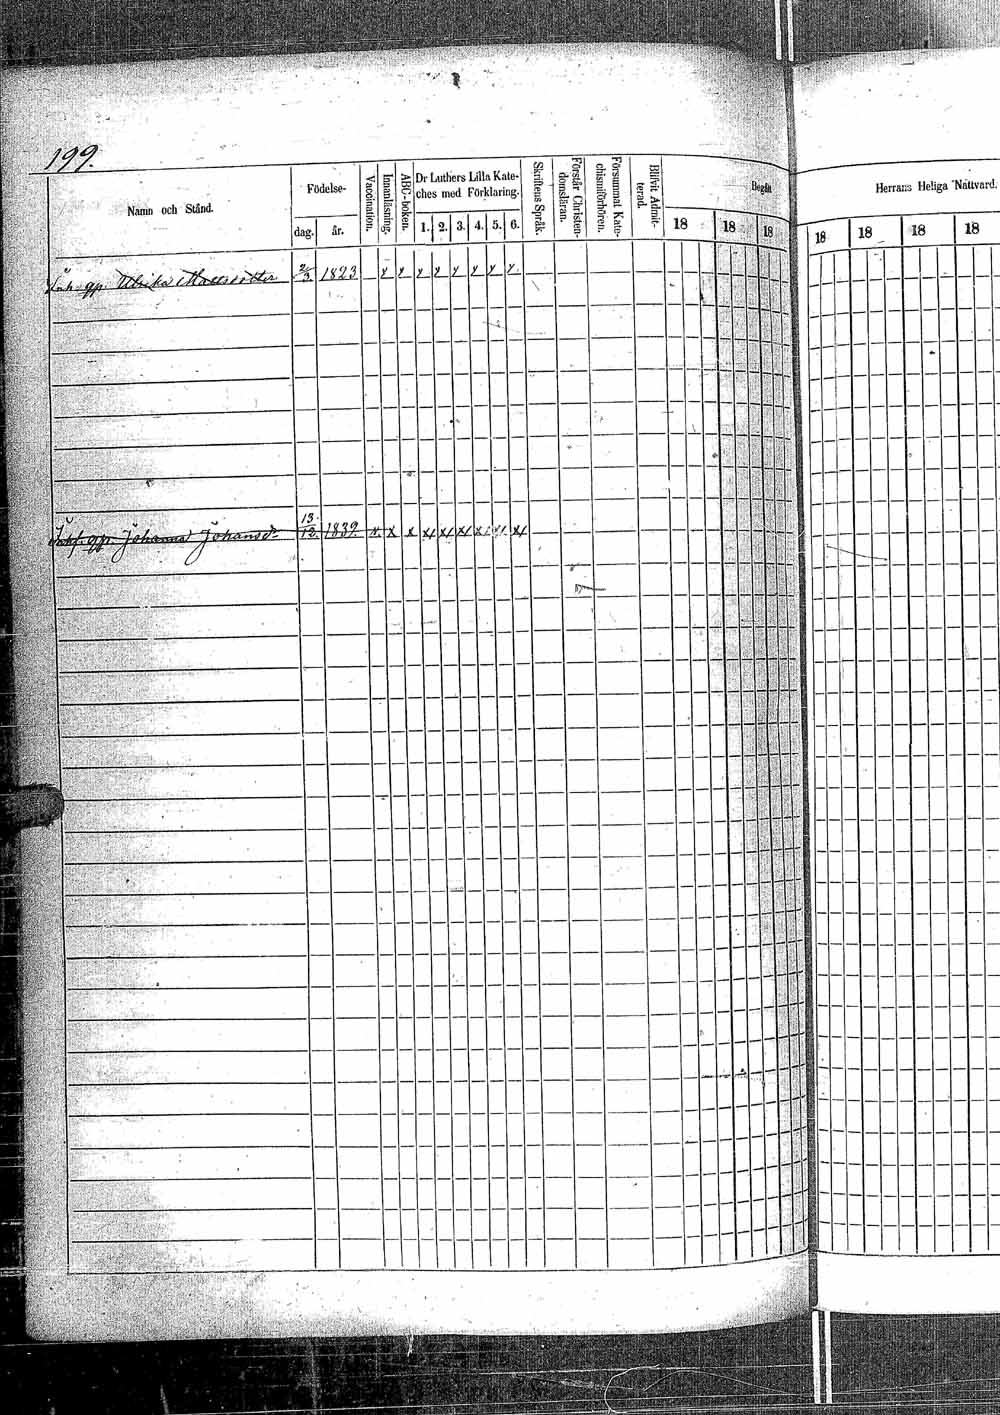 199.
Namn och Stånd.
Födelse-
dag.
år.
Vaccination.
Innanläsning.
ABC-boken.
Dr Luthers Lilla Kate-
ches med Förklaring.
1. 2. 3. 4. 5. 6.
Skriftens Språk.
Förstår Christen-
domsläran.
Försummat Kate-
chismiförhören.
Blifvit Admit-
terad.
Begått
18 18 18
Herrans Heliga Nattvard.
18 18 18 18
Inh. qp. Ulrika Mattsdotter 2/3 1823 y y y y y y y y
Inh. qp. Johanna Johansd. 13/12 1839. x x x x x x x x x